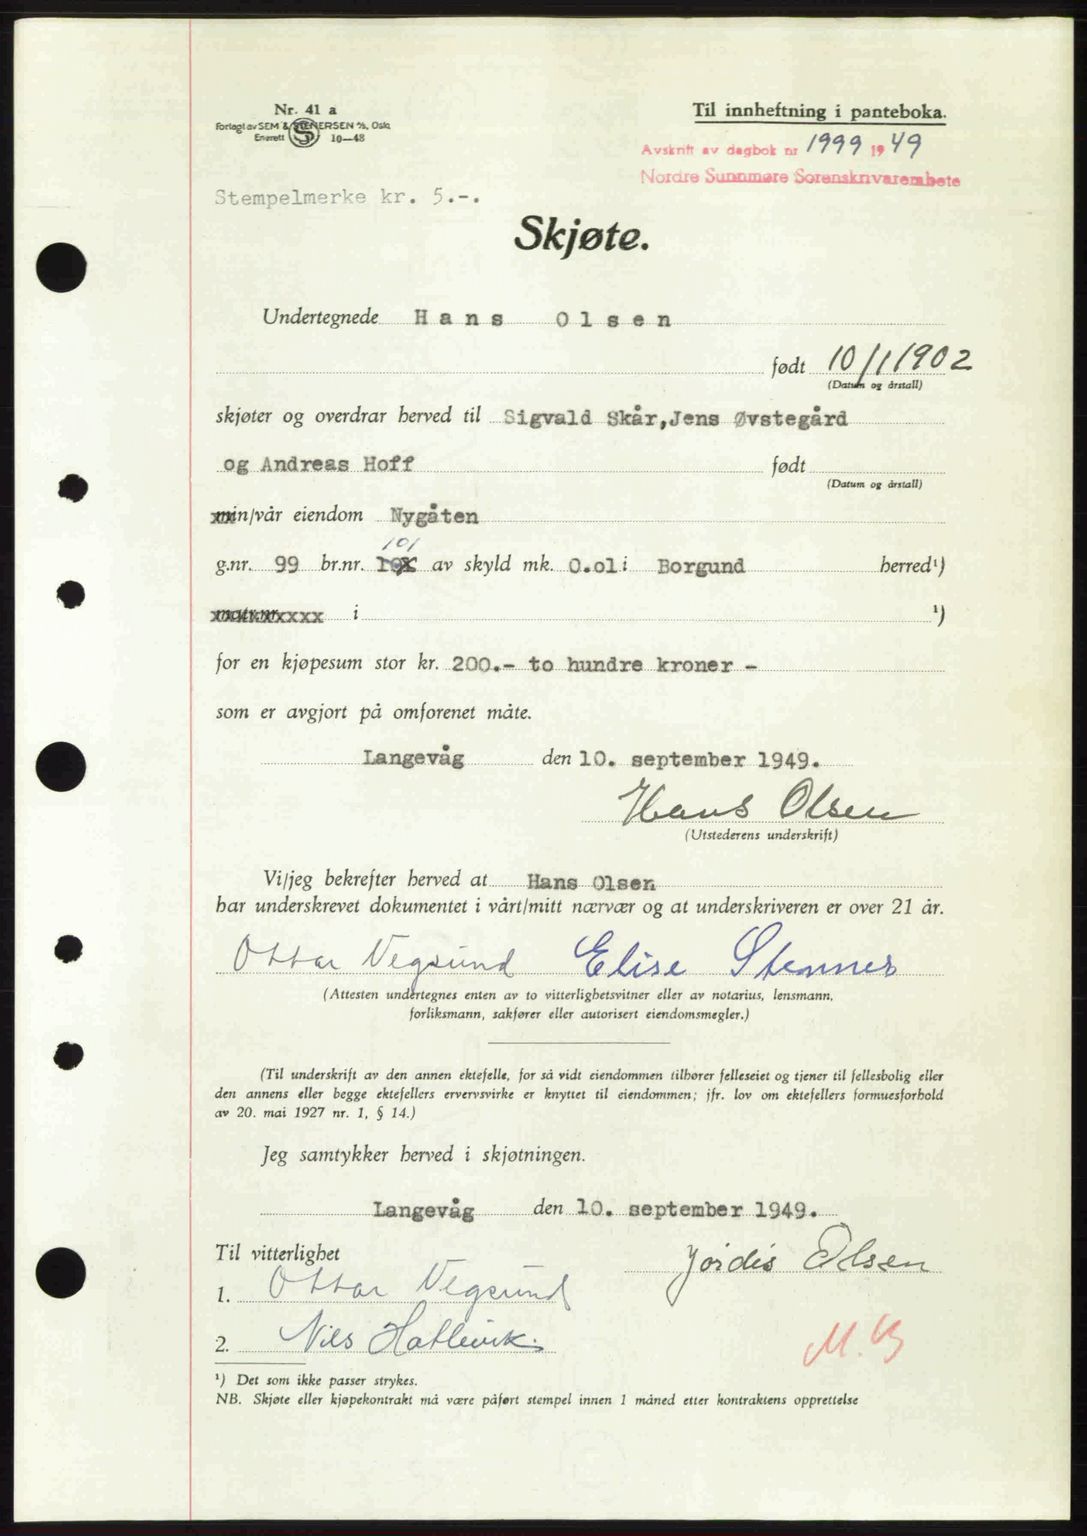 Nr. 41 a
Forlagt av SEM & STENERSEN A/S, Oslo
Enerett 10—48
Til innheftning i panteboka.
Avskrift av dagbok nr 1999 1949
Nordre Sunnmøre Sorenskrivarembete
Stempelmerke kr. 5.-.
Skjøte.
Undertegnede Hans Olsen
født 10/1 1902
(Datum og årstall)
skjøter og overdrar herved til Sigvald Skår,Jens Øvstegård
og Andreas Hoff født
(Datum og årstall)
min/vår eiendom Nygåten
101
g.nr. 99 br.nr. av skyld mk. 0.01 i Borgund herred¹)
i ¹)
for en kjøpesum stor kr. 200.- to hundre kroner -
som er avgjort på omforenet måte.
Langevåg den 10. september 1949.
Hans Olsen
(Utstederens underskrift)
Vi/jeg bekrefter herved at Hans Olsen
har underskrevet dokumentet i vårt/mitt nærvær og at underskriveren er over 21 år.
Ottar Vegsund Elise Stenner
(Attesten undertegnes enten av to vitterlighetsvitner eller av notarius, lensmann,
forliksmann, sakfører eller autorisert eiendomsmegler.)
(Til underskrift av den annen ektefelle, for så vidt eiendommen tilhører felleseiet og tjener til fellesbolig eller
den annens eller begge ektefellers ervervsvirke er knyttet til eiendommen; jfr. lov om ektefellers formuesforhold
av 20. mai 1927 nr. 1, § 14.)
Jeg samtykker herved i skjøtningen.
Langevåg den 10. september 1949.
Til vitterlighet
Jordis Olsen
1. Ottar Vegsund
2. Nils Hatlevik.
¹) Det som ikke passer strykes.
NB. Skjøte eller kjøpekontrakt må være påført stempel innen 1 måned etter kontraktens opprettelse